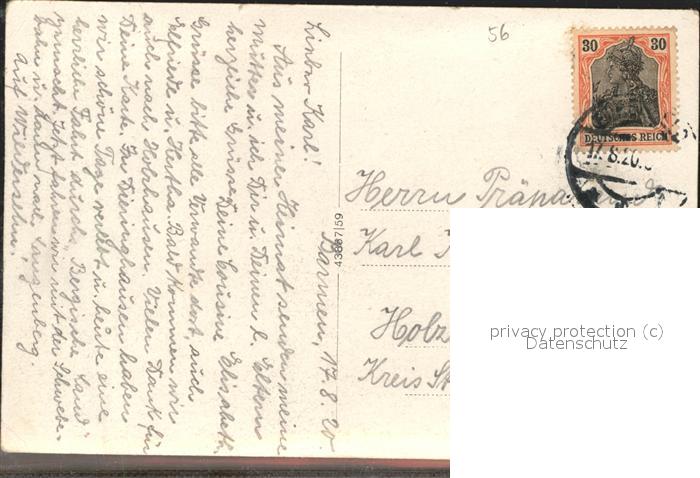 56
30 30
DEUTSCHES REICH
17.8.20.
Barmen, 17.8.20.
Lieber Karl!
Aus meiner Heimat senden meine
Mutter u. ich Dir u. Deinen l. Eltern
herzliche Grüsse. Deine Cousine Elisabeth.
Grüsse bitte alle Verwandte dort, auch
u. Hertha. Bald kommen wir
auch nach Holzhausen. Vielen Dank für
Deine Karte. In Dieringhausen haben
wir schöne Tage verlebt u. heute eine
herrliche Fahrt durchs "Bergische Land"
gemacht. Jetzt fahren wir mit der Schwebe-
bahn u. dann nach Langenberg.
Auf Wiedersehn!
43887|59
Herrn
Karl
Holz
Kreis
privacy protection (c)
Datenschutz